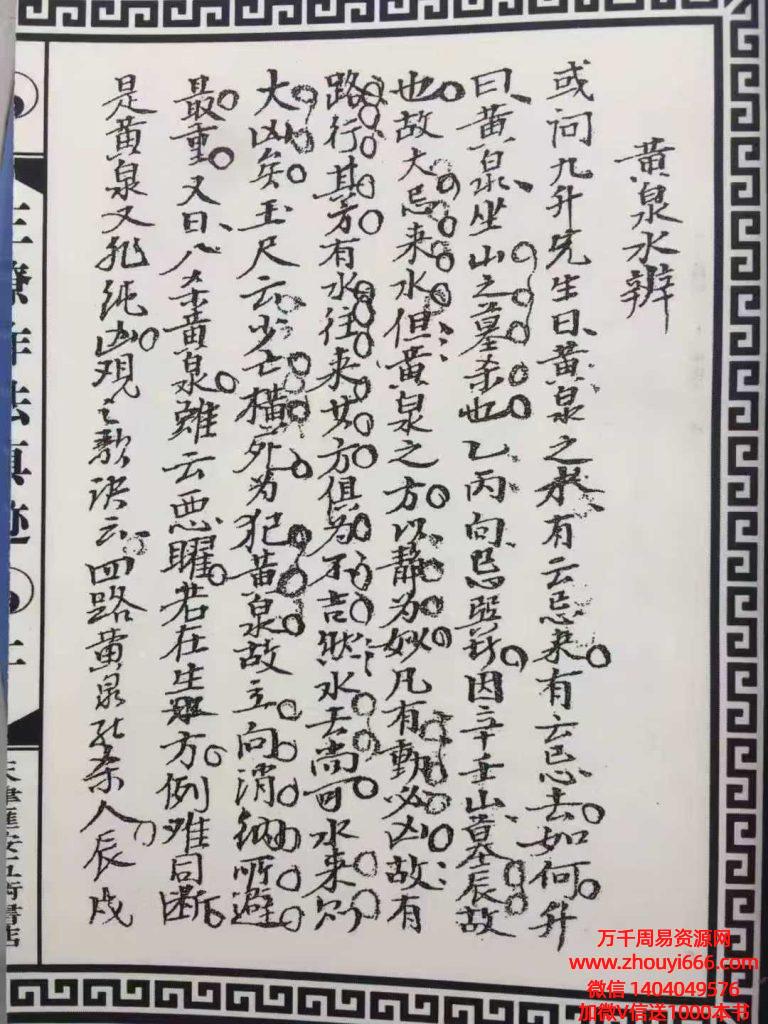 黄泉水辨
或问九升先生曰黄泉之水有云忌来有云忌去如何升
曰黄泉坐山之墓杀也乙丙向忌巽芹因辛壬山墓辰故
也故大忌来水但黄泉之方以静为妙凡有動必凶故有
路行其方有水往来其方俱为不吉然水去尚可水来则
大凶矣玉尺云少亡横死为犯黄泉故立向消纳所避
最重又曰八杀黄泉雖云悪曜若在生方例难同断
是黄泉又非纯凶观之歌诀云四路黄泉能杀人辰戌
万千周易资源网
www.zhouyi666.com
微信 1404049576
加微V信送1000本书